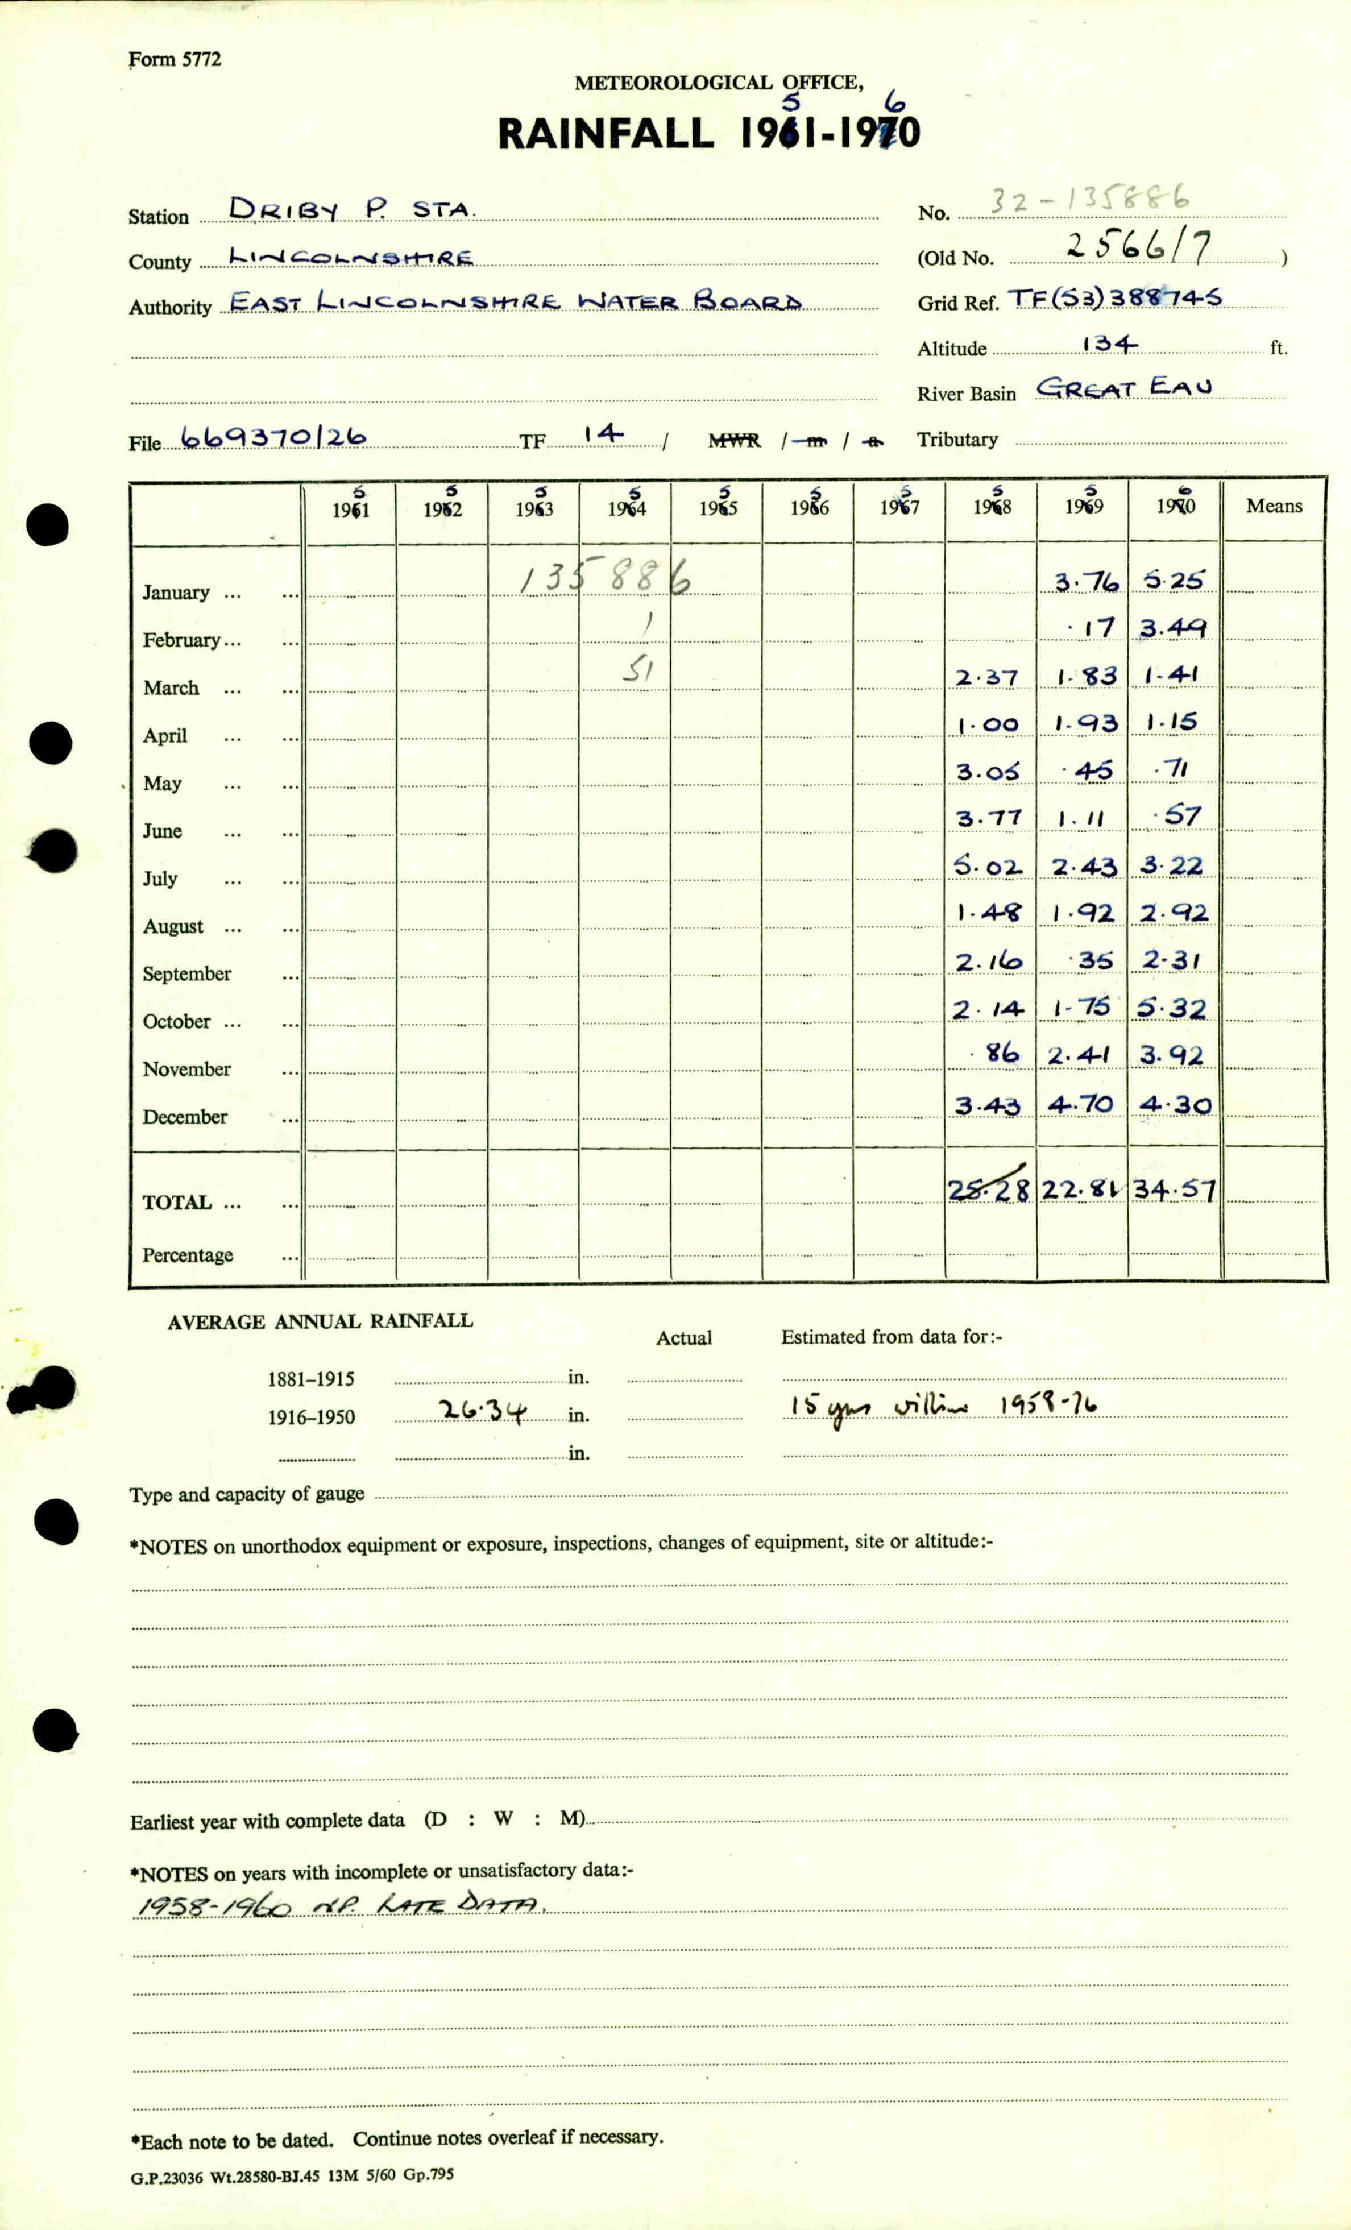 Form 5772
METEOROLOGICAL OFFICE,
5 6
RAINFALL 1961-1970
Station DRIBY P. STA. No. 32-135886
County LINCOLNSHIRE (Old No. 2566/7 )
Authority EAST LINCOLNSHIRE WATER BOARD Grid Ref. TF(53)388745
Altitude 134 ft.
River Basin GREAT EAU
File 669370/26 TF 14 / MWR / m / a Tributary
5 5 5 5 5 5 5 5 5 6
1961 1962 1963 1964 1965 1966 1967 1968 1969 1970 Means
January ... ... 135886 3.76 5.25
February ... ... 1 .17 3.49
March ... ... 51 2.37 1.83 1.41
April ... ... 1.00 1.93 1.15
May ... ... 3.05 .45 .71
June ... ... 3.77 1.11 .57
July ... ... 5.02 2.43 3.22
August ... ... 1.48 1.92 2.92
September ... 2.16 .35 2.31
October ... ... 2.14 1.75 5.32
November ... .86 2.41 3.92
December ... 3.43 4.70 4.30
TOTAL ... ... 25.28 22.81 34.57
Percentage ...
AVERAGE ANNUAL RAINFALL
Actual Estimated from data for:-
1881–1915 in.
1916–1950 26.34 in. 15 yrs within 1958-76
in.
Type and capacity of gauge
*NOTES on unorthodox equipment or exposure, inspections, changes of equipment, site or altitude:-
Earliest year with complete data (D : W : M)
*NOTES on years with incomplete or unsatisfactory data:-
1958-1960 NP. LATE DATA.
*Each note to be dated. Continue notes overleaf if necessary.
G.P.23036 Wt.28580-BJ.45 13M 5/60 Gp.795